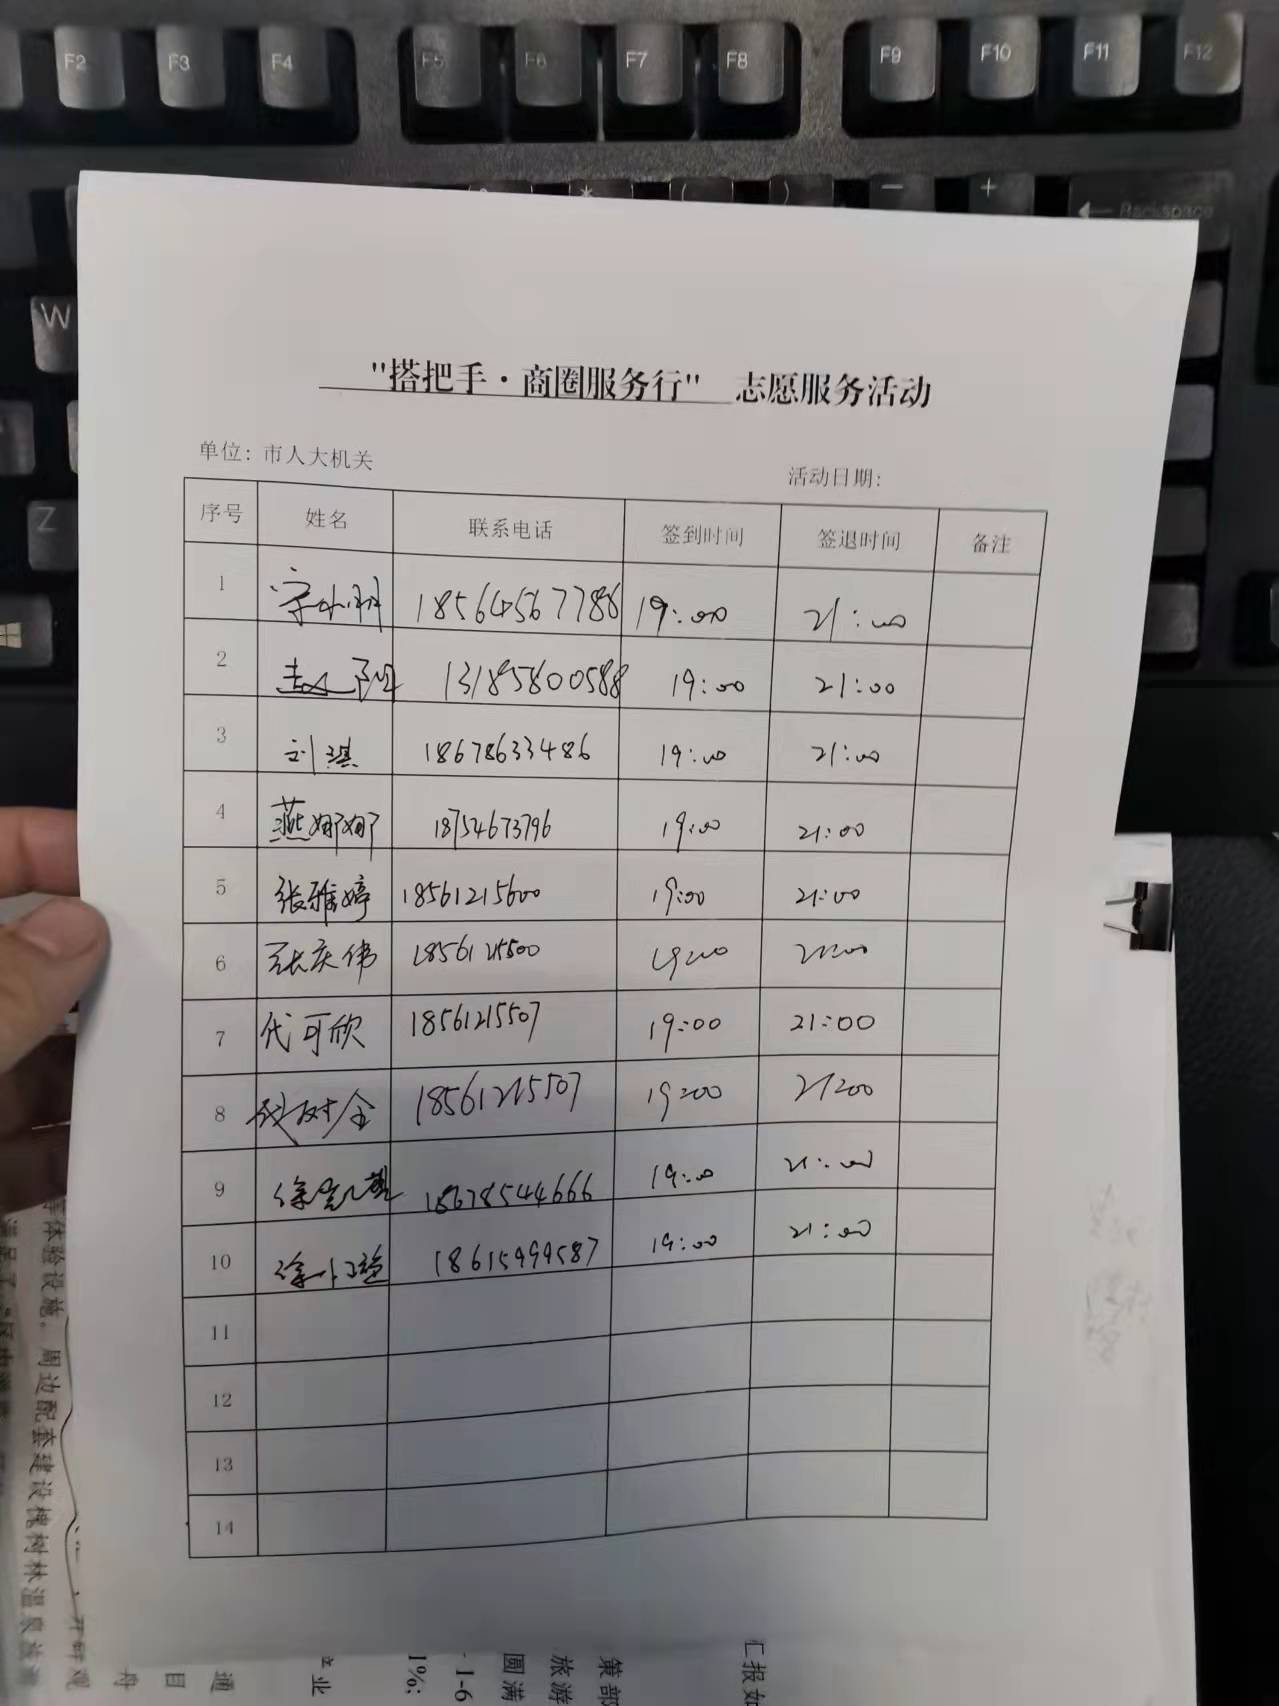 F2 F3 F4 F5 F6 F7 F8 F9 F10 F11 F12
* ( ) − +
← Backspace
W
Z
"搭把手·商圈服务行" 志愿服务活动
单位：市人大机关 活动日期：
序号 姓名 联系电话 签到时间 签退时间 备注
1 18564567786 19:00 21:00
2 13185800588 19:00 21:00
3 刘琪 18678633486 19:00 21:00
4 燕娜娜 18754673796 19:00 21:00
5 张雅婷 18561215600 19:00 21:00
6 张庆伟 1856125500 19:00 21:00
7 代可欣 18561215507 19:00 21:00
8 18561215507 19:00 21:00
9 18678544666 19:00 21:00
10 18615999587 19:00 21:00
11
12
13
14
等体验设施。周边配套建设槐树林温泉旅游
开鲜观
舟
目
通
产业
1%;
1-6
圆满
旅游
策部
汇报如